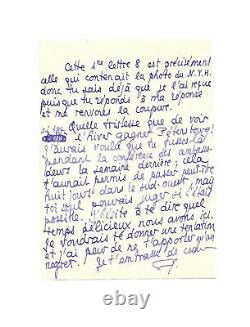 Cette 1re lettre 8 est précisément
celle qui contenait la photo du N.Y.H.
donc tu sais déjà que je l'ai reçue
puisque tu réponds à ma réponse
et me renvois la coupure.
Quelle tristesse que de voir
l'hiver gagner Pétersbourg!
J'aurais voulu que tu fusses là
pendant la conférence des ambassa-
deurs la semaine dernière; cela
t'aurait permis de passer peut-être
huit jours dans le sud-ouest, mais
toi seul pouvais juger si c'était
possible. J'hésite à te dire quel
temps délicieux nous avons ici.
Je voudrais te donner une tentation
et j'ai peur de ne t'apporter qu'un
regret. Je t'embrasse de cœur